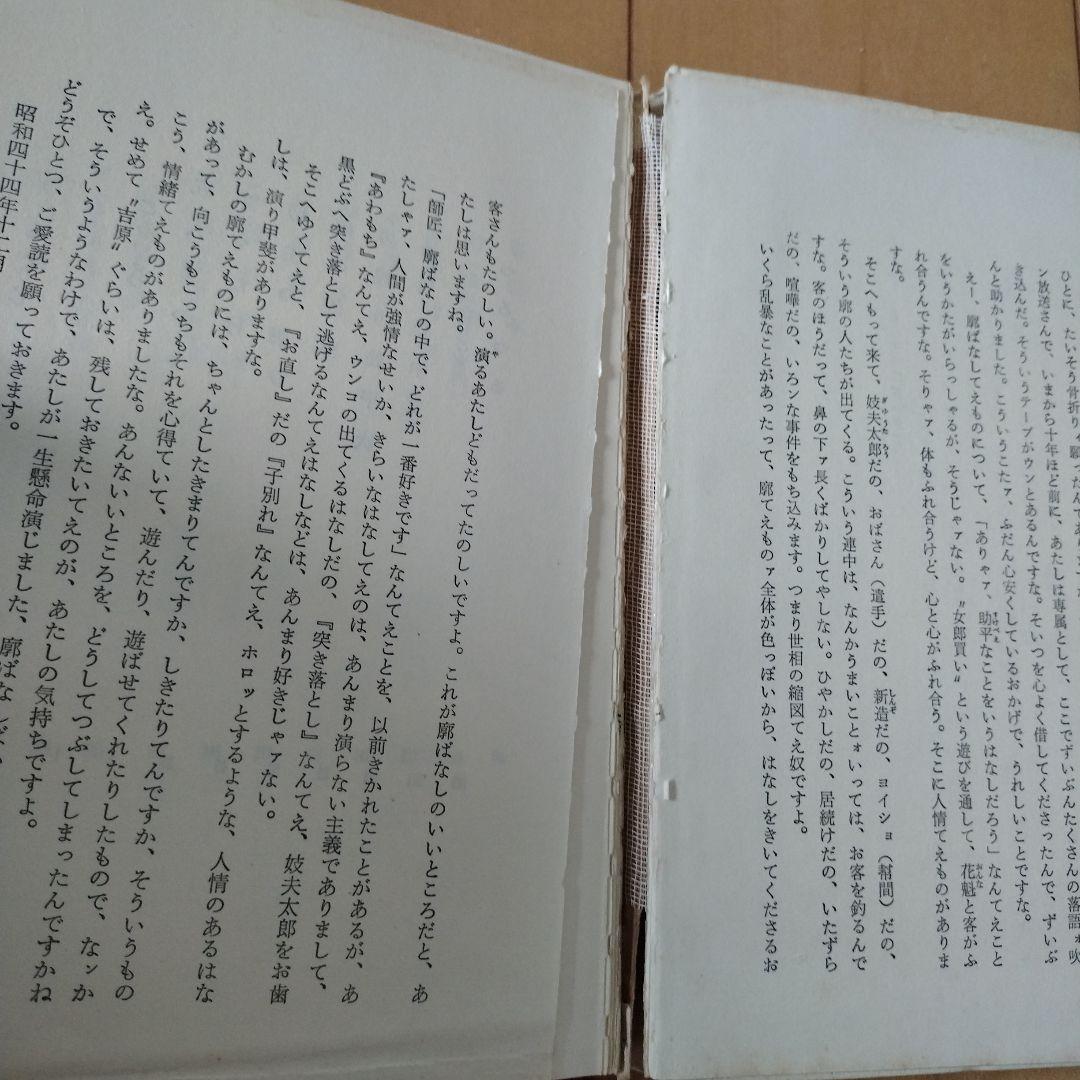 ひとに、たいそう骨折り
ン放送さんで、いまから十年ほど前に、あたしは専属として、ここでずいぶんたくさんの落語ォ吹
き込んだ。そういうテープがウンとあるんですな。そいつを心よく借してくださったんで、ずいぶ
んと助かりました。こういうこたァ、ふだん心安くしているおかげで、うれしいことですな。
えー、廓ばなしてえものについて、「ありゃァ、助平なことをいうはなしだろう」なんてえこと
をいうかたがいらっしゃるが、そうじゃァない。〝女郎買い〟という遊びを通して、花魁と客がふ
れ合うんですな。そりゃァ、体もふれ合うけど、心と心がふれ合う。そこに人情てえものがありま
すな。
そこへもって来て、妓夫太郎だの、おばさん（遣手）だの、新造だの、ヨイショ（幇間）だの、
そういう廓の人たちが出てくる。こういう連中は、なんかうまいことォいっては、お客を釣るんで
すな。客のほうだって、鼻の下ァ長くばかりしてやしない。ひやかしだの、居続けだの、いたずら
だの、喧嘩だの、いろンな事件をもち込みます。つまり世相の縮図てえ奴ですよ。
いくら乱暴なことがあったって、廓てえものァ全体が色っぽいから、はなしをきいてくださるお
客さんもたのしい。演るあたしどもだってたのしいですよ。これが廓ばなしのいいところだと、あ
たしは思いますね。
「師匠、廓ばなしの中で、どれが一番好きです」なんてえことを、以前きかれたことがあるが、あ
たしゃァ、人間が強情なせいか、きらいなはなしてえのは、あんまり演らない主義でありまして、
『あわもち』なんてえ、ウンコの出てくるはなしだの、『突き落とし』なんてえ、妓夫太郎をお歯
黒どぶへ突き落として逃げるなんてえはなしなどは、あんまり好きじゃァない。
そこへゆくてえと、『お直し』だの『子別れ』なんてえ、ホロッとするような、人情のあるはな
しは、演り甲斐がありますな。
むかしの廓てえものには、ちゃんとしたきまりてんですか、しきたりてんですか、そういうもの
があって、向こうもこっちもそれを心得ていて、遊んだり、遊ばせてくれたりしたもので、なンか
こう、情緒てえものがありましたな。あんないいところを、どうしてつぶしてしまったんですかね
え。せめて〝吉原〟ぐらいは、残しておきたいてえのが、あたしの気持ちですよ。
で、そういうようなわけで、あたしが一生懸命演じました、廓ばなし
どうぞひとつ、ご愛読を願っておきます。
昭和四十四年十二月